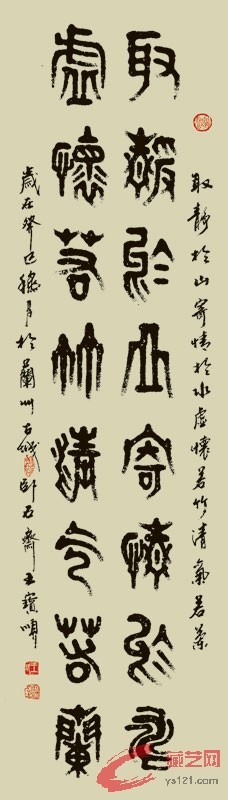 取靜於山寄情於水虛懷若竹清氣若蘭
取靜於山寄情於水
虛懷若竹清气若蘭
歲在癸巳月於蘭州古城卧石齋王寶
藏艺网
ys121.com